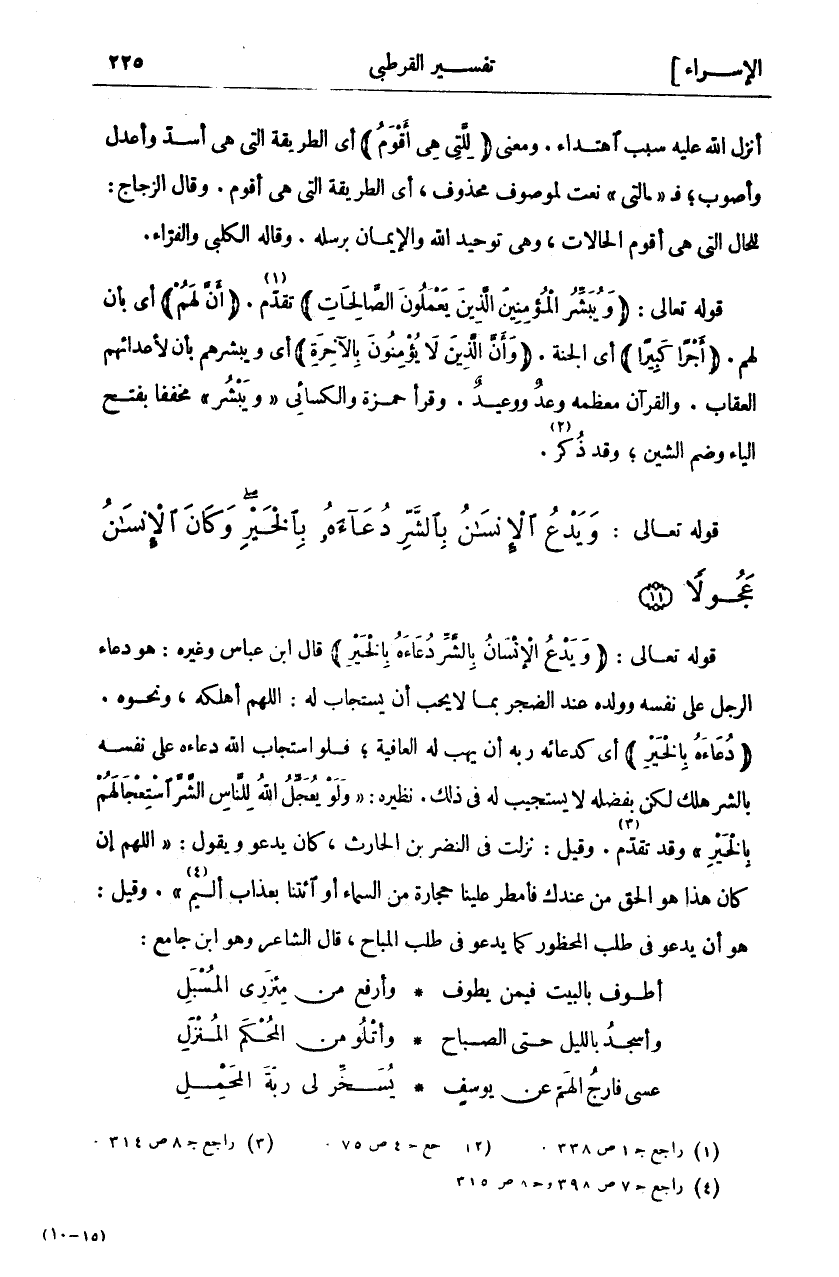 الإســراء ] تفســـير القرطبى ٢٢٥
أنزل الله عليه سبب ٱهتداء . ومعنى ﴿ لِلَّتِى هِىَ أَقْوَمُ ﴾ أى الطريقة التى هى أسدّ وأعدل
وأصوب؛ فـ « ـالتى » نعت لموصوف محذوف ، أى الطريقة التى هى أقوم . وقال الزجاج :
للحال التى هى أقوم الحالات ، وهى توحيد الله والإيمـان برسله . وقاله الكلبى والفرّاء.
قوله تعالى : ﴿ وَيُبَشِّرُ الْمُؤْمِنِينَ الَّذِينَ يَعْمَلُونَ الصَّالِحَاتِ ﴾ تقدّم (١) . ﴿ أَنَّ لَهُمْ ﴾ أى بأن
لهم . ﴿ أَجْرًا كَبِيرًا ﴾ أى الجنة . ﴿ وَأَنَّ الَّذِينَ لَا يُؤْمِنُونَ بِالآخِرَةِ ﴾ أى ويبشرهم بأن لأعدائهم
العقاب . والقرآن معظمه وعدٌ ووعيـدٌ . وقرأ حمـزة والكسائى « ويَبْشُر » مخففا بفتـح
الياء وضم الشين ؛ وقد ذُكر (٢) .
قوله تعـالى : وَيَدْعُ ٱلْإِنسَـٰنُ بِٱلشَّرِّ دُعَآءَهُۥ بِٱلْخَيْرِ ۖ وَكَانَ ٱلْإِنسَـٰنُ
عَجُـولًا ﴿١١﴾
قوله تعـالى : ﴿ وَيَدْعُ الْإِنْسَانُ بِالشَّرِّ دُعَاءَهُ بِالْخَيْرِ ﴾ قال ابن عباس وغيره : هو دعاء
الرجل على نفسه وولده عند الضجر بمـا لا يحب أن يستجاب له : اللهم أهلكه ، ونحـوه .
﴿ دُعَاءَهُ بِالْخَيْرِ ﴾ أى كدعائه ربه أن يهب له العافية ؛ فـلو استجاب الله دعاءه على نفسـه
بالشر هلك لكن بفضله لا يستجيب له فى ذلك. نظيره : « وَلَوْ يُعَجِّلُ اللهُ لِلنَّاسِ الشَّرَّ ٱسْتِعْجَالَهُمْ
بِالْخَيْرِ » وقد تقدّم (٣) . وقيل : نزلت فى النضر بن الحارث ، كان يدعو ويقول : « اللهم إن
كان هذا هو الحق من عندك فأمطر علينا حجارة من السماء أو ٱئتنا بعذاب أليم (٤) » . وقيل :
هو أن يدعو فى طلب المحظور كما يدعو فى طلب المباح ، قال الشاعر وهو ابن جامع :
أطوف بالبيت فيمن يطوف * وأرفع من مِئزرِى المُسْبَلِ
وأسجـدُ بالليل حـتى الصـباح * وأَتْلُو من المُحْكَم المُنْزَلِ
عسى فارجُ الهَمّ عن يوسفٍ * يُسَـخِّر لى ربّةَ المَحْمِـلِ
(١) راجع جـ ١ ص ٣٣٨ . (٢ جع جـ ٤ ص ٧٥ . (٣) راجع جـ ٨ ص ٣١٤ .
(٤) راجع جـ ٧ ص ٣٩٨ و جـ ٨ ص ٣١٥
(١٠-١٥)